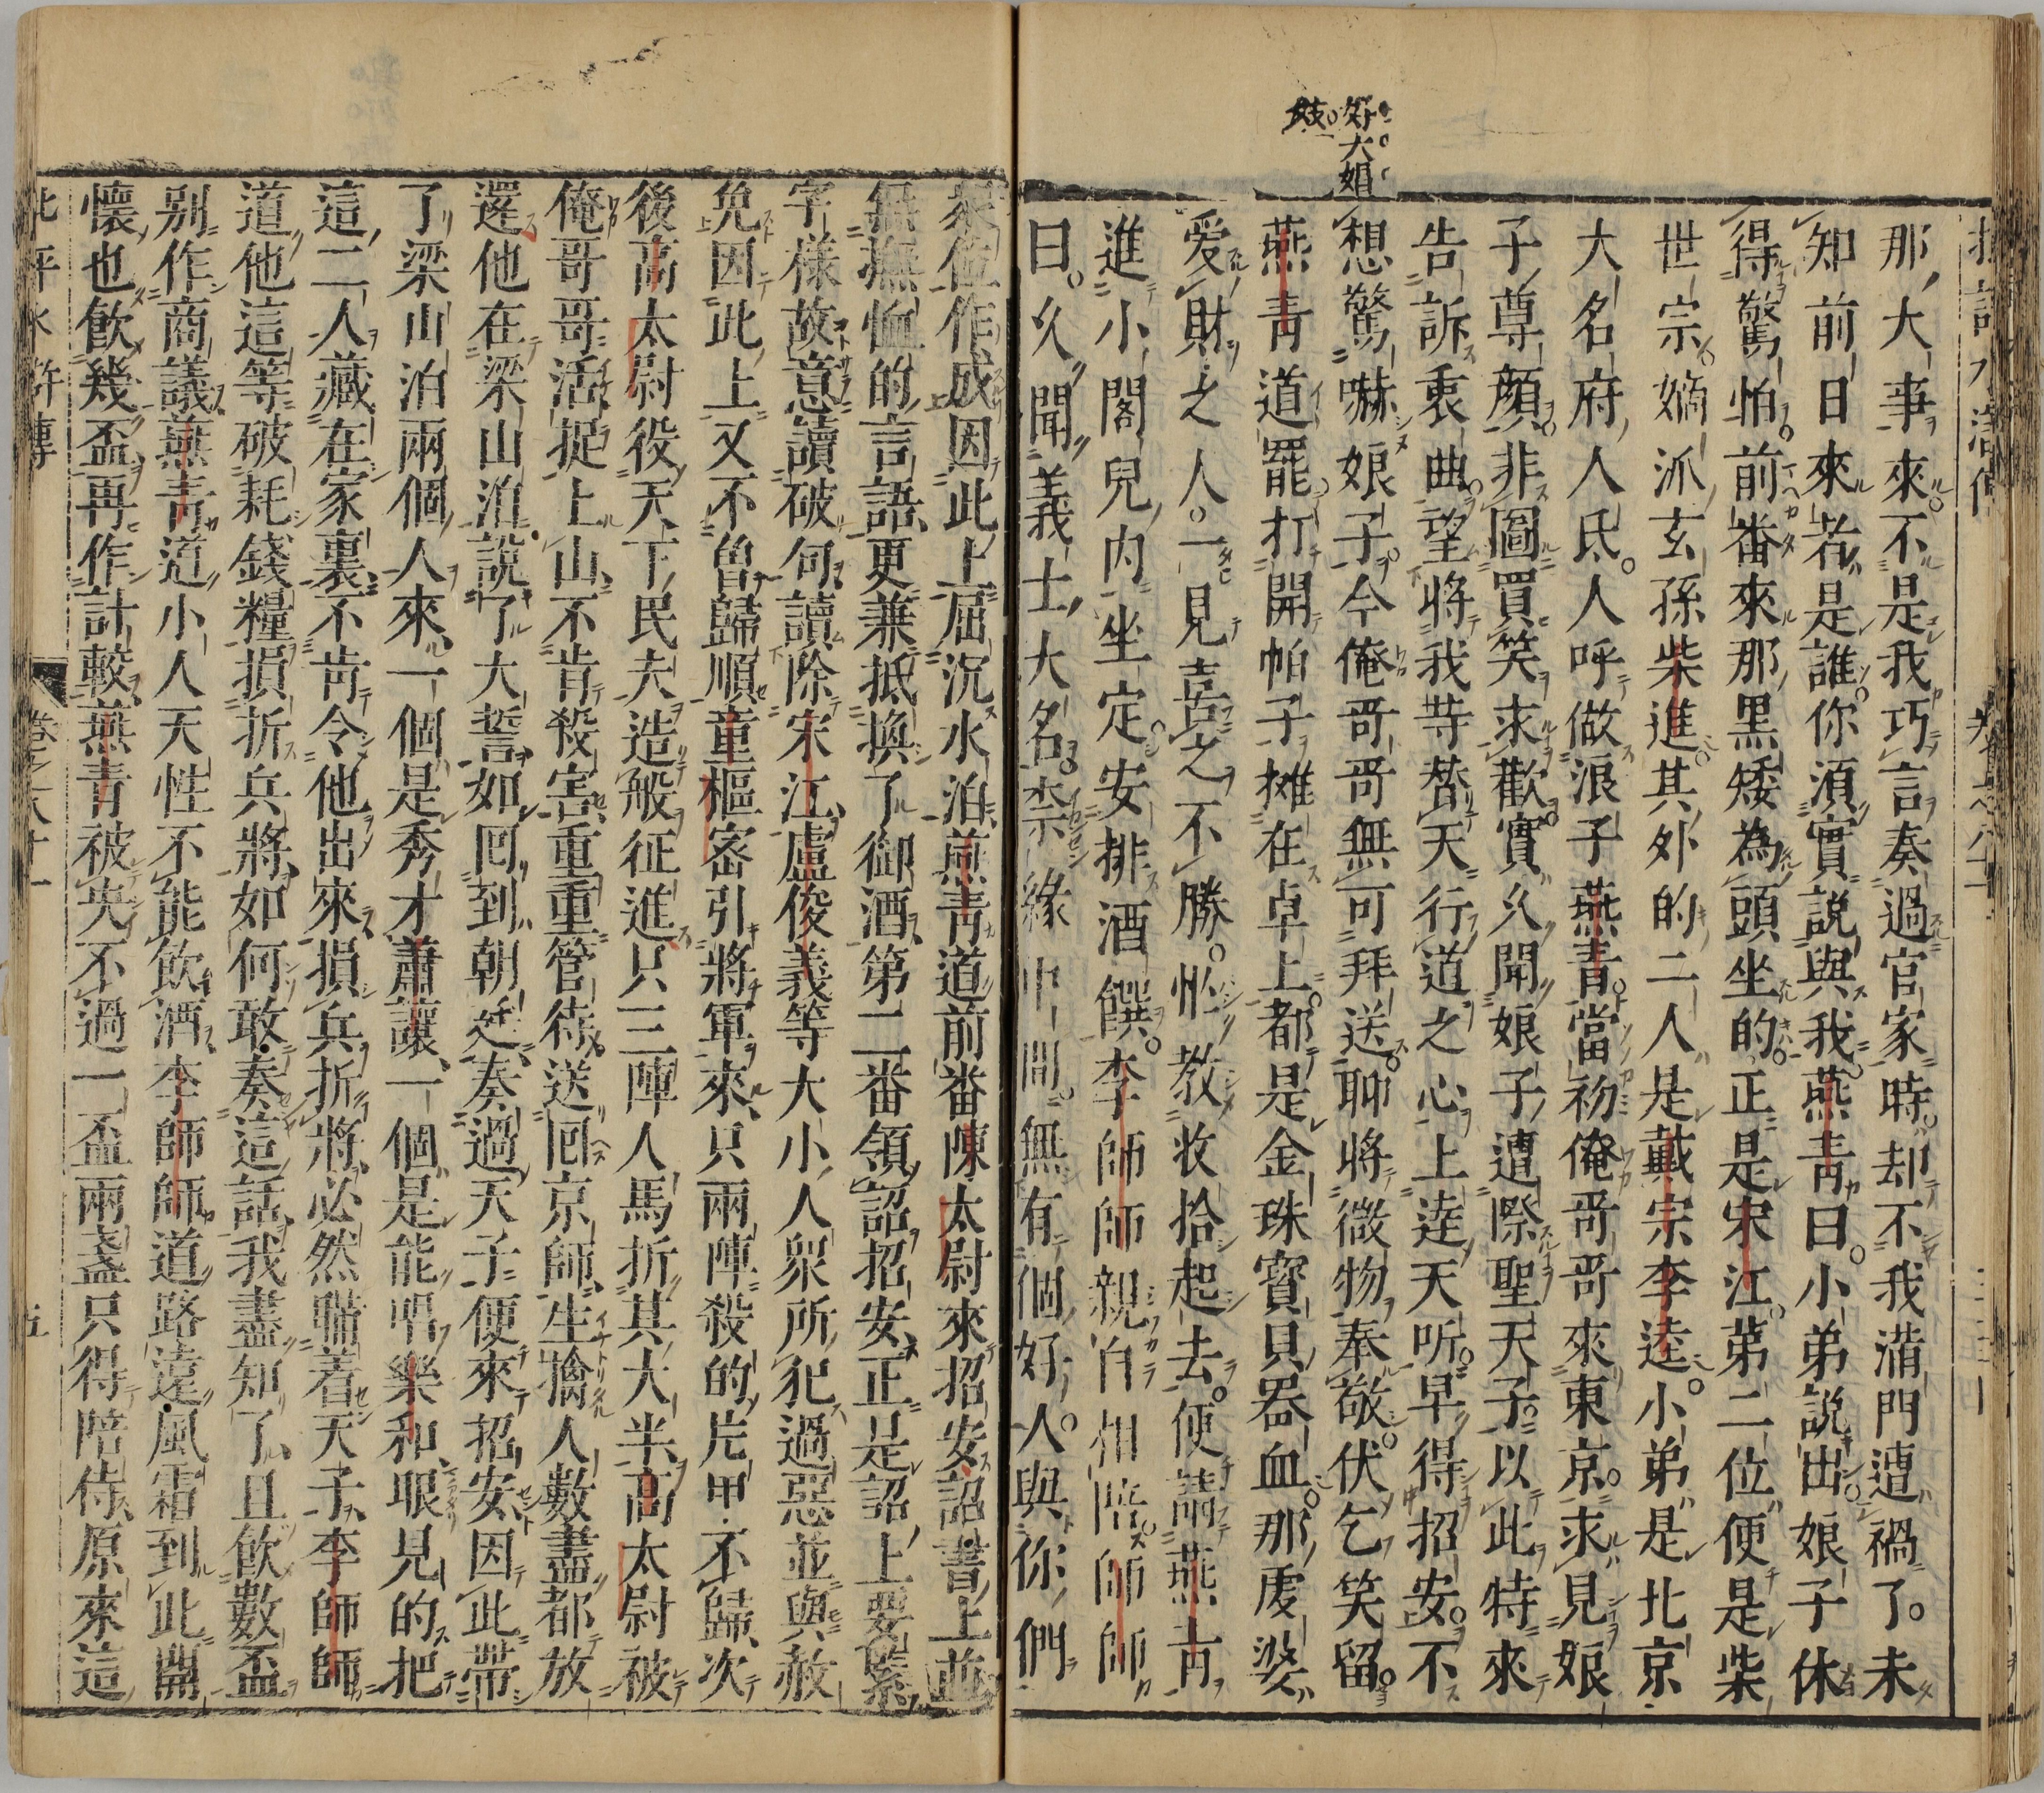 好大娼
妓
那大事來不是我巧言奏過官家時却不我滿門遭禍了未
知前日來者是誰你須實說與我燕青曰小弟說出娘子休
得驚怕前番來那黑矮為頭坐的正是宋江第二位便是柴
世宗嫡派玄孫柴進其外的二人是戴宗李逵小弟是北京
大名府人氏人呼做浪子燕青當初俺哥哥來東京求見娘
子尊顏非圖買笑求歡實久聞娘子遭際聖天子以此特來
告訴衷曲望將我等替天行道之心上達天听早得招安不
想驚嚇娘子今俺哥哥無可拜送聊將微物奉敬伏乞笑留
燕青道罷打開帕子摊在卓上都是金珠寶貝器血那虔婆
愛財之人一見喜之不勝忙教收拾起去便請燕青
進小閣兒内坐定安排酒饌李師師親自相陪師師
曰久聞義士大名柰緣中間無有個好人與你們
衆位作成因此上屈沉水泊燕青道前番陳太尉來招安詔書上並
無撫恤的言語更兼抵換了御酒第二番領詔招安正是詔上要緊
字樣故意讀破句讀除宋江盧俊義等大小人衆所犯過惡並與赦
免因此上又不曾歸順童樞密引將軍來只兩陣殺的片甲不歸次
後高太尉役天下民夫造般征進只三陣人馬折其大半高太尉被
俺哥哥活捉上山不肯殺害重重管待送囘京師生擒人數盡都放
還他在梁山泊說了大誓如囘到朝廷奏過天子便來招安因此帶
了梁山泊兩個人來一個是秀才蕭讓一個是能唱樂和眼見的把
這二人藏在家裏不肯令他出來損兵折將必然瞞着天子李師師
道他這等破耗錢糧損折兵將如何敢奏這話我盡知了且飲數盃
别作商議燕青道小人天性不能飲酒李師師道路遠風霜到此開
懷也飲幾盃再作計較燕青被央不過一盃兩盞只得陪侍原來這
卷之八十一
五